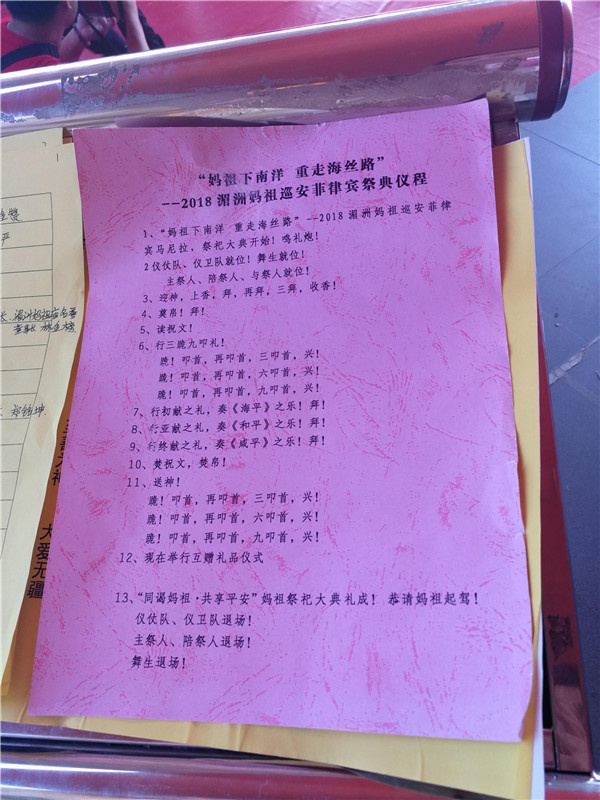 “妈祖下南洋 重走海丝路”
--2018 湄洲妈祖巡安菲律宾祭典仪程
1、“妈祖下南洋 重走海丝路”--2018 湄洲妈祖巡安菲律
宾马尼拉，祭祀大典开始！鸣礼炮！
2仪仗队、仪卫队就位！舞生就位！
主祭人、陪祭人、与祭人就位！
3、迎神，上香，拜，再拜，三拜，收香！
4、奠帛！拜！
5、读祝文！
6、行三跪九叩礼！
跪！叩首，再叩首，三叩首，兴！
跪！叩首，再叩首，六叩首，兴！
跪！叩首，再叩首，九叩首，兴！
7、行初献之礼，奏《海平》之乐！拜！
8、行亚献之礼，奏《和平》之乐！拜！
9、行终献之礼，奏《咸平》之乐！拜！
10、焚祝文，焚帛！
11、送神！
跪！叩首，再叩首，三叩首，兴！
跪！叩首，再叩首，六叩首，兴！
跪！叩首，再叩首，九叩首，兴！
12、现在举行互赠礼品仪式
13、“同谒妈祖·共享平安”妈祖祭祀大典礼成！ 恭请妈祖起驾！
仪仗队、仪卫队退场！
主祭人、陪祭人退场！
舞生退场！
大爱无疆